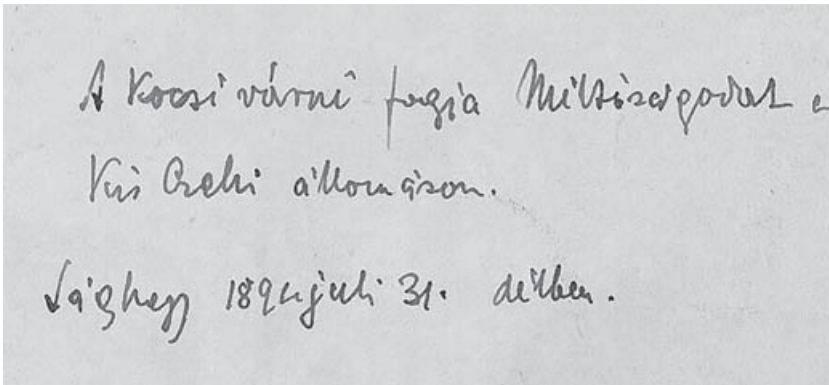 A Kocsi várni fogja Méltóságodat a
Kis Czelli állomáson.
Sághegy 1891 juli 31. délben.